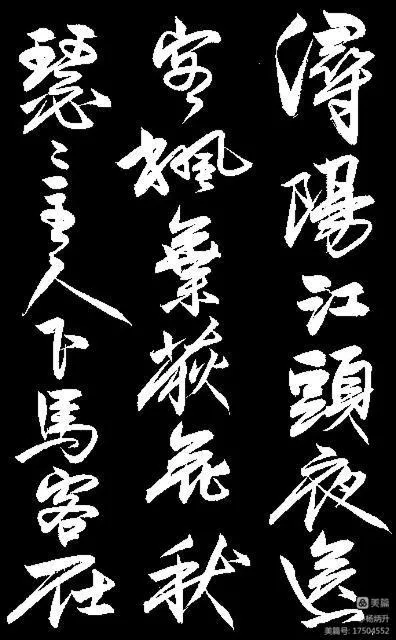 潯陽江頭夜送
客楓葉荻花秋
瑟〻主人下馬客在
美篇
杨炳升
美篇号: 17504552